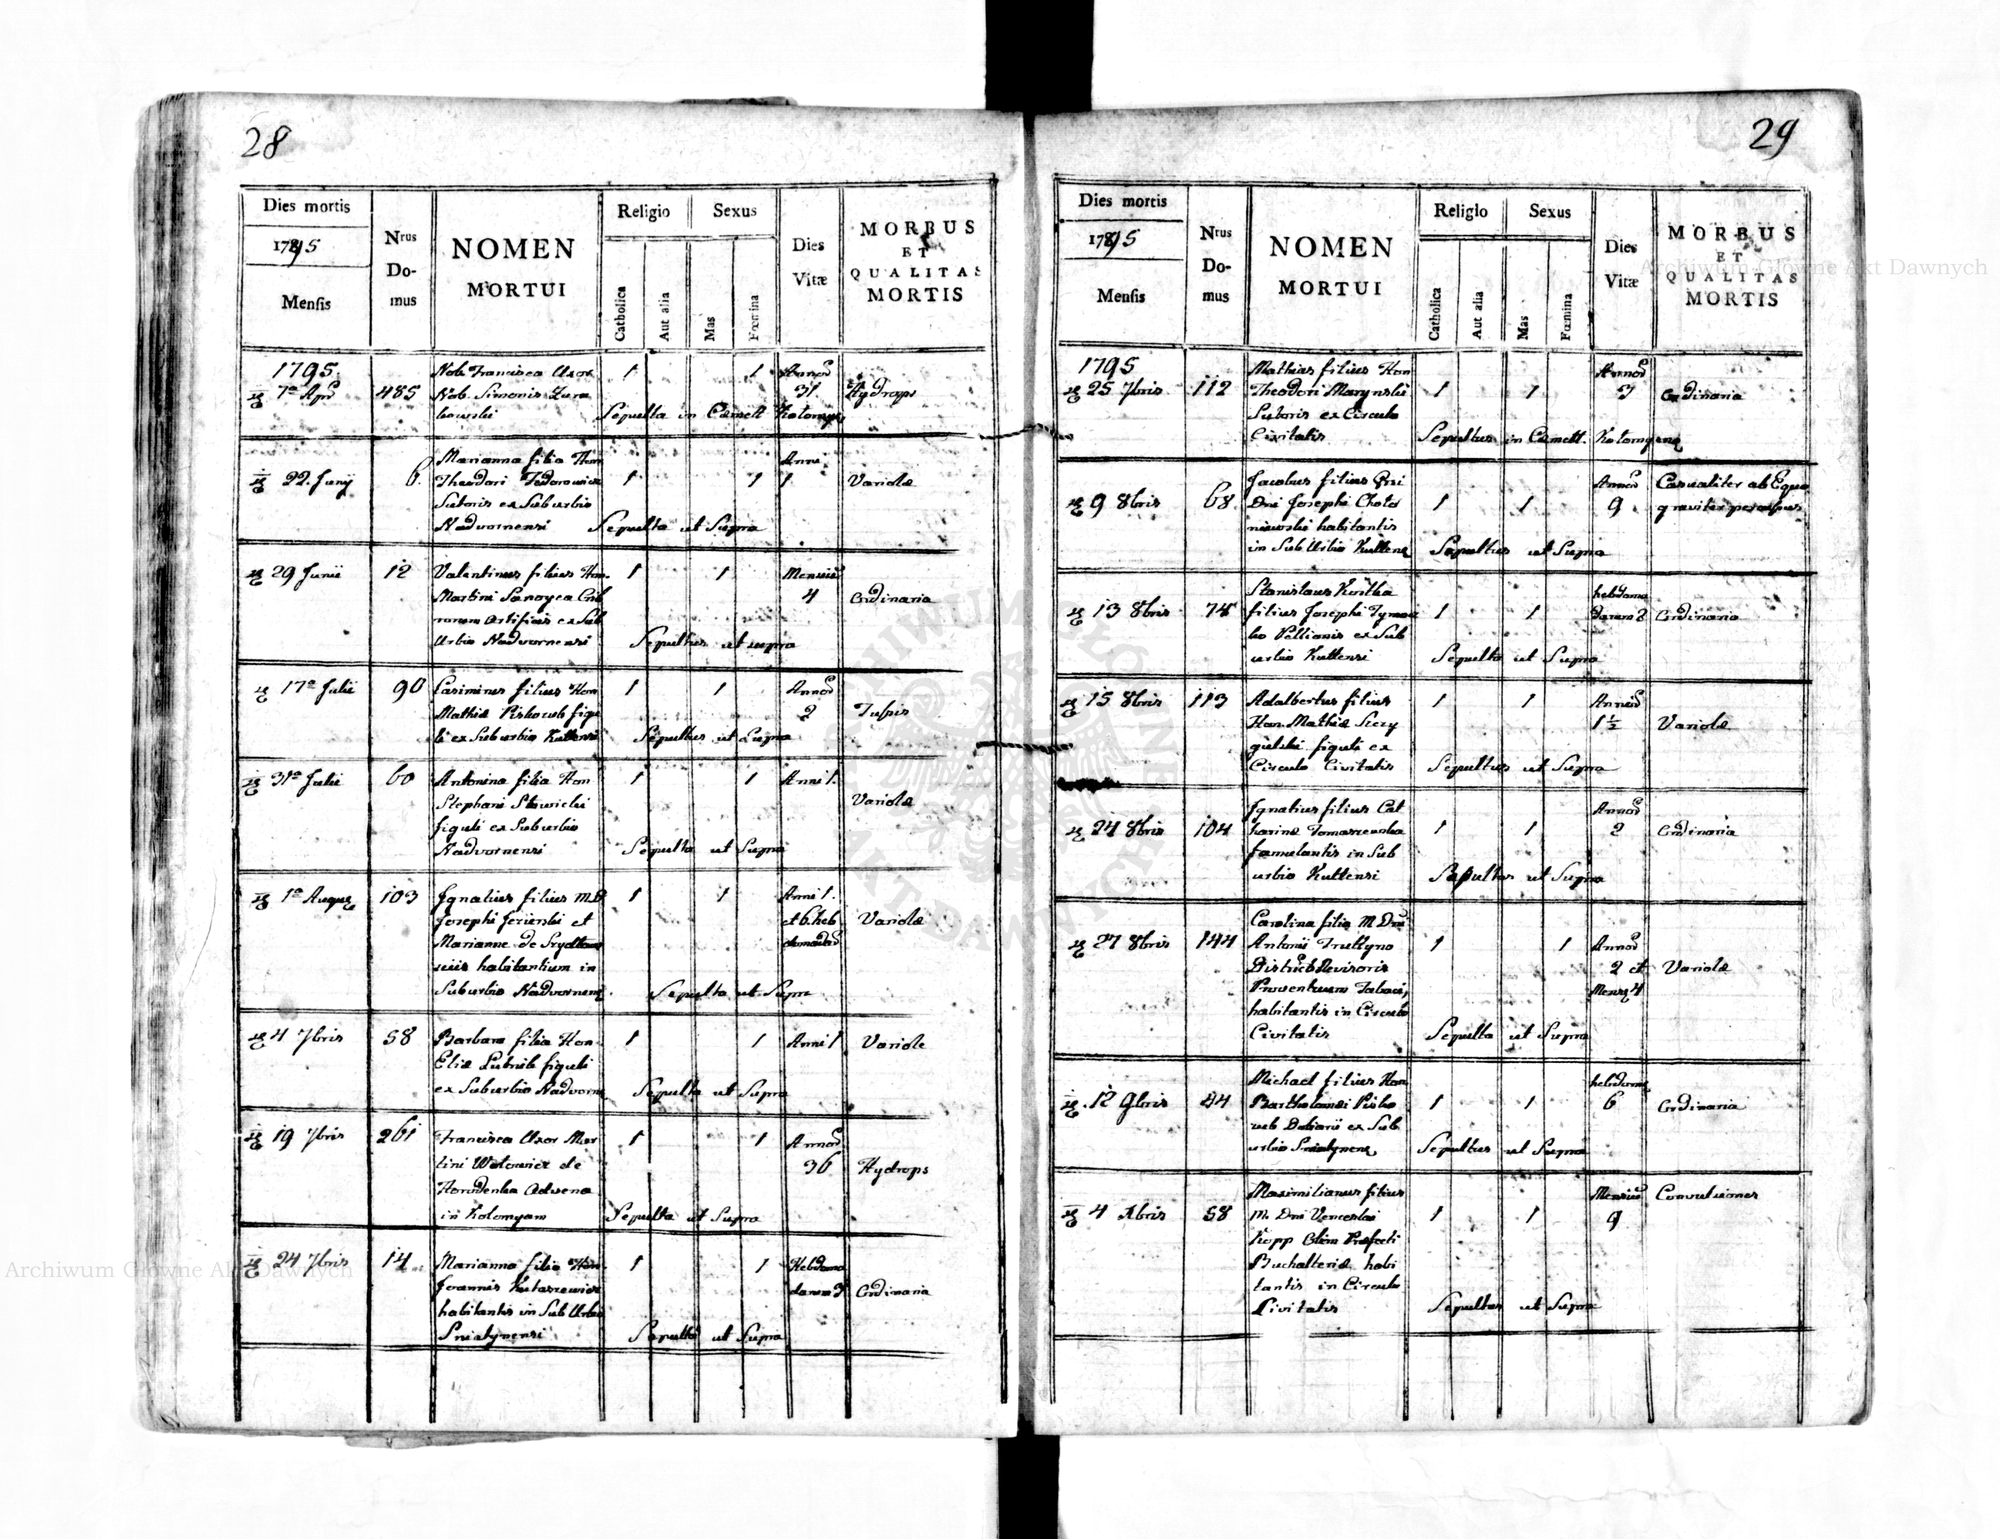 28
Dies mortis
1795
Mensis
Nrus
Do-
mus
NOMEN
MORTUI
Religio
Catholica
Aut alia
Sexus
Mas
Fœmina
Dies
Vitæ
MORBUS
ET
QUALITAS
MORTIS
1795.
7a Apr 485
Nob. Francisca Uxor
Nob. Simonis Zura
kowski
1 1
Annor
31
Hydrops
Sepulta in Cœmett Kolomyen
22. Junÿ 6.
Marianna filia Hon
Theodori Fedorowicz
Sutoris ex Suburbio
Nadvornensi
1 1
Anni
1
Variolæ
Sepulta ut Supra
29 Junii 12
Valentinus filius Hon.
Martini Sanoyca Crib
rorum Artificis ex Sub
Urbio Nadvornensi
1 1
Mensiu
4
Ordinaria
Sepultus ut supra
17a Julii 90
Casimirus filius Hon
Mathiæ Piskozub figu
li ex Suburbio Kuttensi
1 1
Annor
2
Tussis
Sepultus ut Supra
31a Julii 60
Antonina filia Hon
Stephani
figuli ex Suburbio
Nadvornensi
1 1
Anni 1.
Variolæ
Sepulta ut Supra
1a Augus 103
Ignatius filius M.D
Josephi et
Marianne de
habitantium in
Suburbio Nadvornens
1 1
Anni 1.
et 6. heb
domadar
Variolæ
Sepulta ut Supr
4 7bris 58
Barbara filia Hon
Eliæ figuli
ex Suburbio Nadvorn
1 1
Anni 1
Variole
Sepulta ut Supra
19 7bris 261
Francisca Uxor Mar
tini Wolowicz de
Horodenka Advena
in Kolomyam
1 1
Annor
36
Hydrops
Sepulta ut Supra
24 7bris 14
Marianna filia Hon
Joannis
habitantis in Sub Urbio
Sniatynensi
1 1
Hebdoma
darum 3
Ordinaria
Sepulta ut Supra
29
Dies mortis
1795
Mensis
Nrus
Do-
mus
NOMEN
MORTUI
Religio
Catholica
Aut alia
Sexus
Mas
Fœmina
Dies
Vitæ
MORBUS
ET
QUALITAS
MORTIS
1795
25 7bris 112
Mathias filius Hon
Theodori Marynski
Sutoris ex Circulo
Civitatis
1 1
Annor
3
Ordinaria
Sepultus in Cœmett. Kolomyens
9 8bris 68
Jacobus filius Gsi
Dni Josephi Choto
niewski habitantis
in Sub Urbio Kuttens
1 1
Annor
9
Casualiter ab Equo
graviter percussus
Sepultus ut Supra
13 8bris 74
Stanislaus Kostka
filius Josephi
Pellionis ex Sub
urbio Kuttensi
1 1
hebdoma
darum 2
Ordinaria
Sepultus ut Supra
15 8bris 113
Adalbertus filius
Hon. Mathiæ Sczy
gielski figuli ex
Circulo Civitatis
1 1
Annor
1 ½
Variolæ
Sepultus ut Supra
24 8bris 104
Ignatius filius Cat
harinæ Tomaszewska
famulantis in Sub
urbio Kuttensi
1 1
Annor
2
Ordinaria
Sepultus ut Supra
27 8bris 144
Carolina filia M. Dni
Antonii
Districts Revisoris
Proventuum Tabaci,
habitantis in Circulo
Civitatis
1 1
Annor
2 et
Mens 4
Variolæ
Sepulta ut Supra
12 9bris 84
Michael filius Hon
Bartholomæi Pisko
zub Doliarii ex Sub
urbio Sniatynens
1 1
hebdoma
6
Ordinaria
Sepultus ut Supra
4 Xbris 58
Maximilianus filius
M. Dni Venceslai
Kopp Præfecti
Buchalteriæ habi
tantis in Circulo
Civitatis
1 1
Mensiu
9
Convulsiones
Sepultus ut Supra
Archiwum Główne Akt Dawnych
Archiwum Główne Akt Dawnych
ARCHIWUM GŁÓWNE AKT DAWNYCH